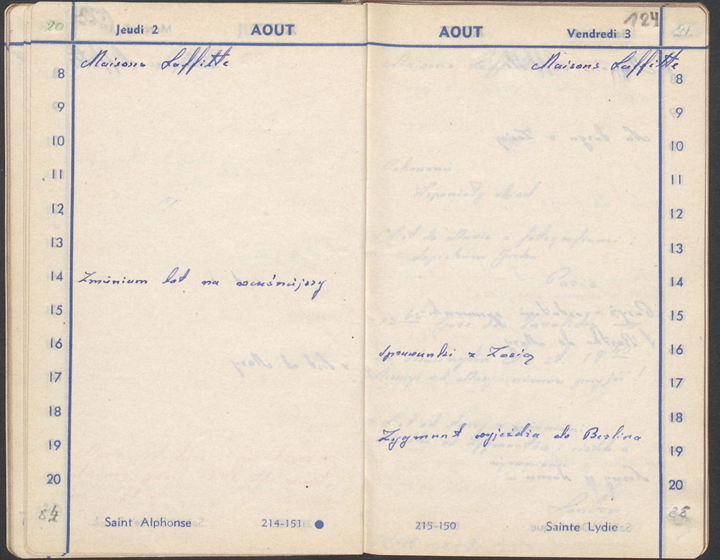 20
Jeudi 2 AOUT
Maisons Laffitte
8
9
10
11
12
13
14 Zmieniam lot na wcześniejszy
15
16
17
18
19
20
Saint Alphonse 214-151
124
AOUT Vendredi 3
21
Maisons Laffitte
8
9
10
11
12
13
14
15
sprawunki z Zosią 16
17
18
Zygmunt wyjeżdża do Berlina 19
20
215-150 Sainte Lydie